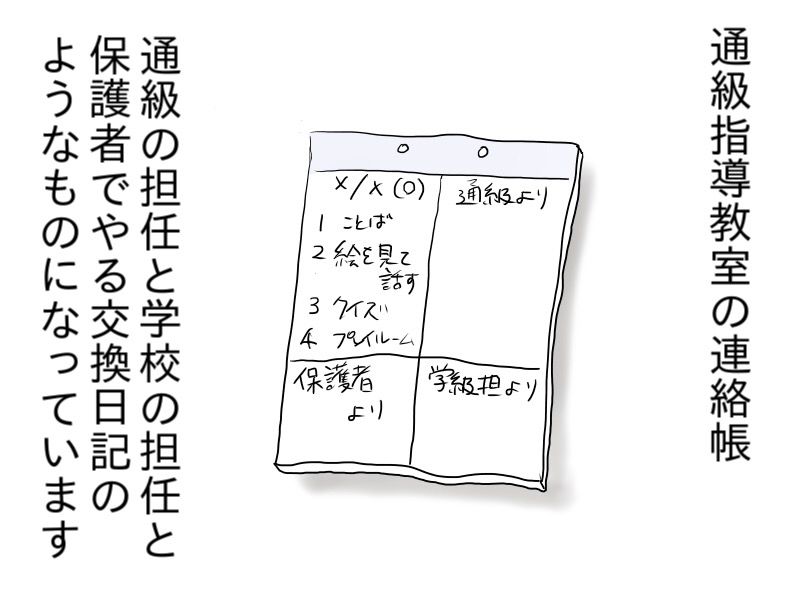 通級指導教室の連絡帳
x/x(0)
1 ことば
2 絵を見て
話す
3 クイズ
4 プレイルーム
通級より
保護者
より
学級担より
通級の担任と学校の担任と
保護者でやる交換日記の
ようなものになっています